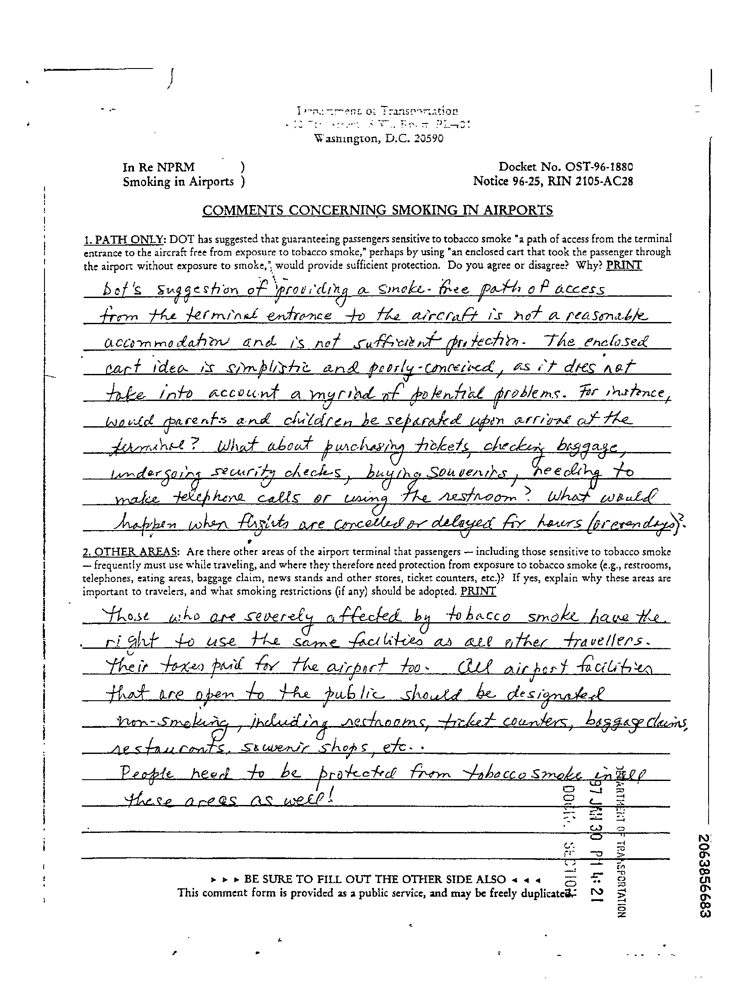 Department of Transportation
Washington, D.C. 20590
In Re NPRM )
Smoking in Airports )
Docket No. OST-96-1880
Notice 96-25, RIN 2105-AC28
COMMENTS CONCERNING SMOKING IN AIRPORTS
1. PATH ONLY: DOT has suggested that guaranteeing passengers sensitive to tobacco smoke "a path of access from the terminal
entrance to the aircraft free from exposure to tobacco smoke," perhaps by using "an enclosed cart that took the passenger through
the airport without exposure to smoke," would provide sufficient protection. Do you agree or disagree? Why? PRINT
Dot's suggestion of providing a smoke-free path of access
from the terminal entrance to the aircraft is not a reasonable
accommodation and is not sufficient protection. The enclosed
cart idea is simplistic and poorly-conceived, as it does not
take into account a myriad of potential problems. For instance,
would parents and children be separated upon arrival at the
terminal? What about purchasing tickets, checking baggage,
undergoing security checks, buying souvenirs, needing to
make telephone calls or using the restroom? What would
happen when flights are cancelled or delayed for hours (or even days)?
2. OTHER AREAS: Are there other areas of the airport terminal that passengers — including those sensitive to tobacco smoke
— frequently must use while traveling, and where they therefore need protection from exposure to tobacco smoke (e.g., restrooms,
telephones, eating areas, baggage claim, news stands and other stores, ticket counters, etc.)? If yes, explain why these areas are
important to travelers, and what smoking restrictions (if any) should be adopted. PRINT
Those who are severely affected by tobacco smoke have the
right to use the same facilities as all other travellers.
Their taxes paid for the airport too. All airport facilities
that are open to the public should be designated
non-smoking, including restrooms, ticket counters, baggage claims,
restaurants, souvenir shops, etc..
People need to be protected from tobacco smoke in all
these areas as well!
DEPARTMENT OF TRANSPORTATION
97 JAN 30 PM 4:21
DOCK. SECTION
► ► ► BE SURE TO FILL OUT THE OTHER SIDE ALSO ◄ ◄ ◄
This comment form is provided as a public service, and may be freely duplicated.
2063856683